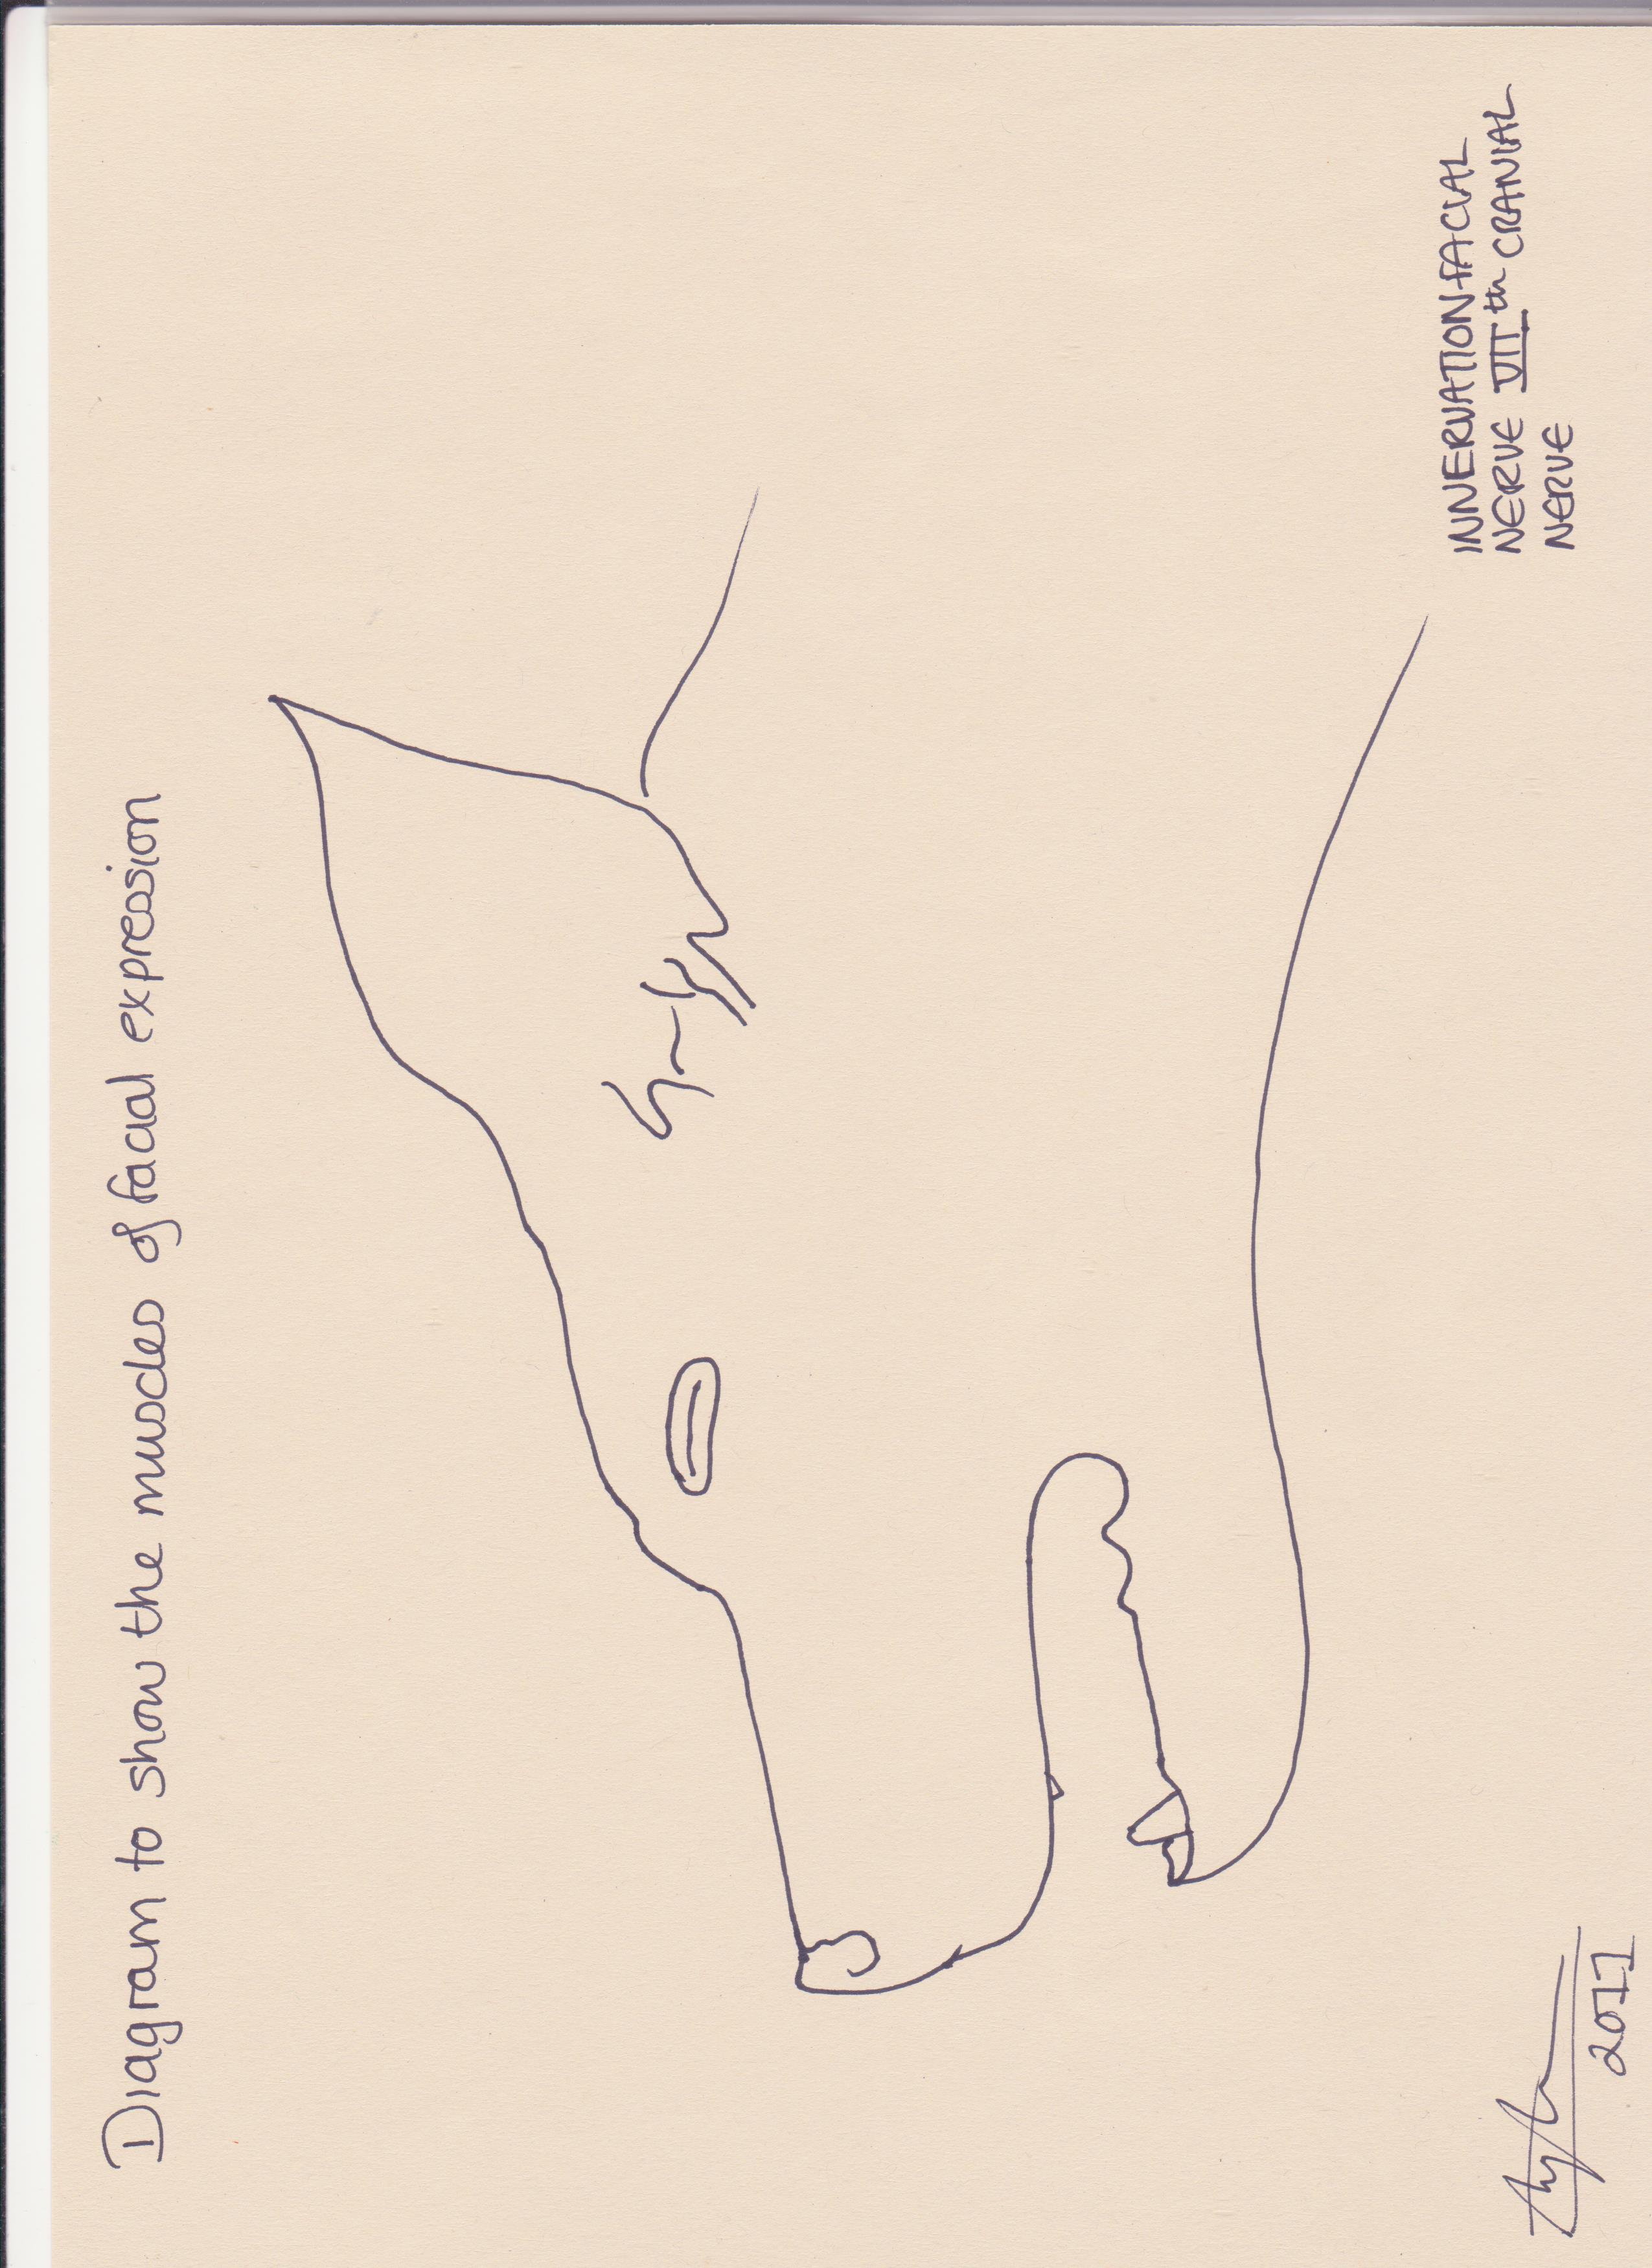 Diagram to show the muscles of facial expression
INNERVATION-FACIAL
NERVE VIIth CRANIAL
NERVE
2011